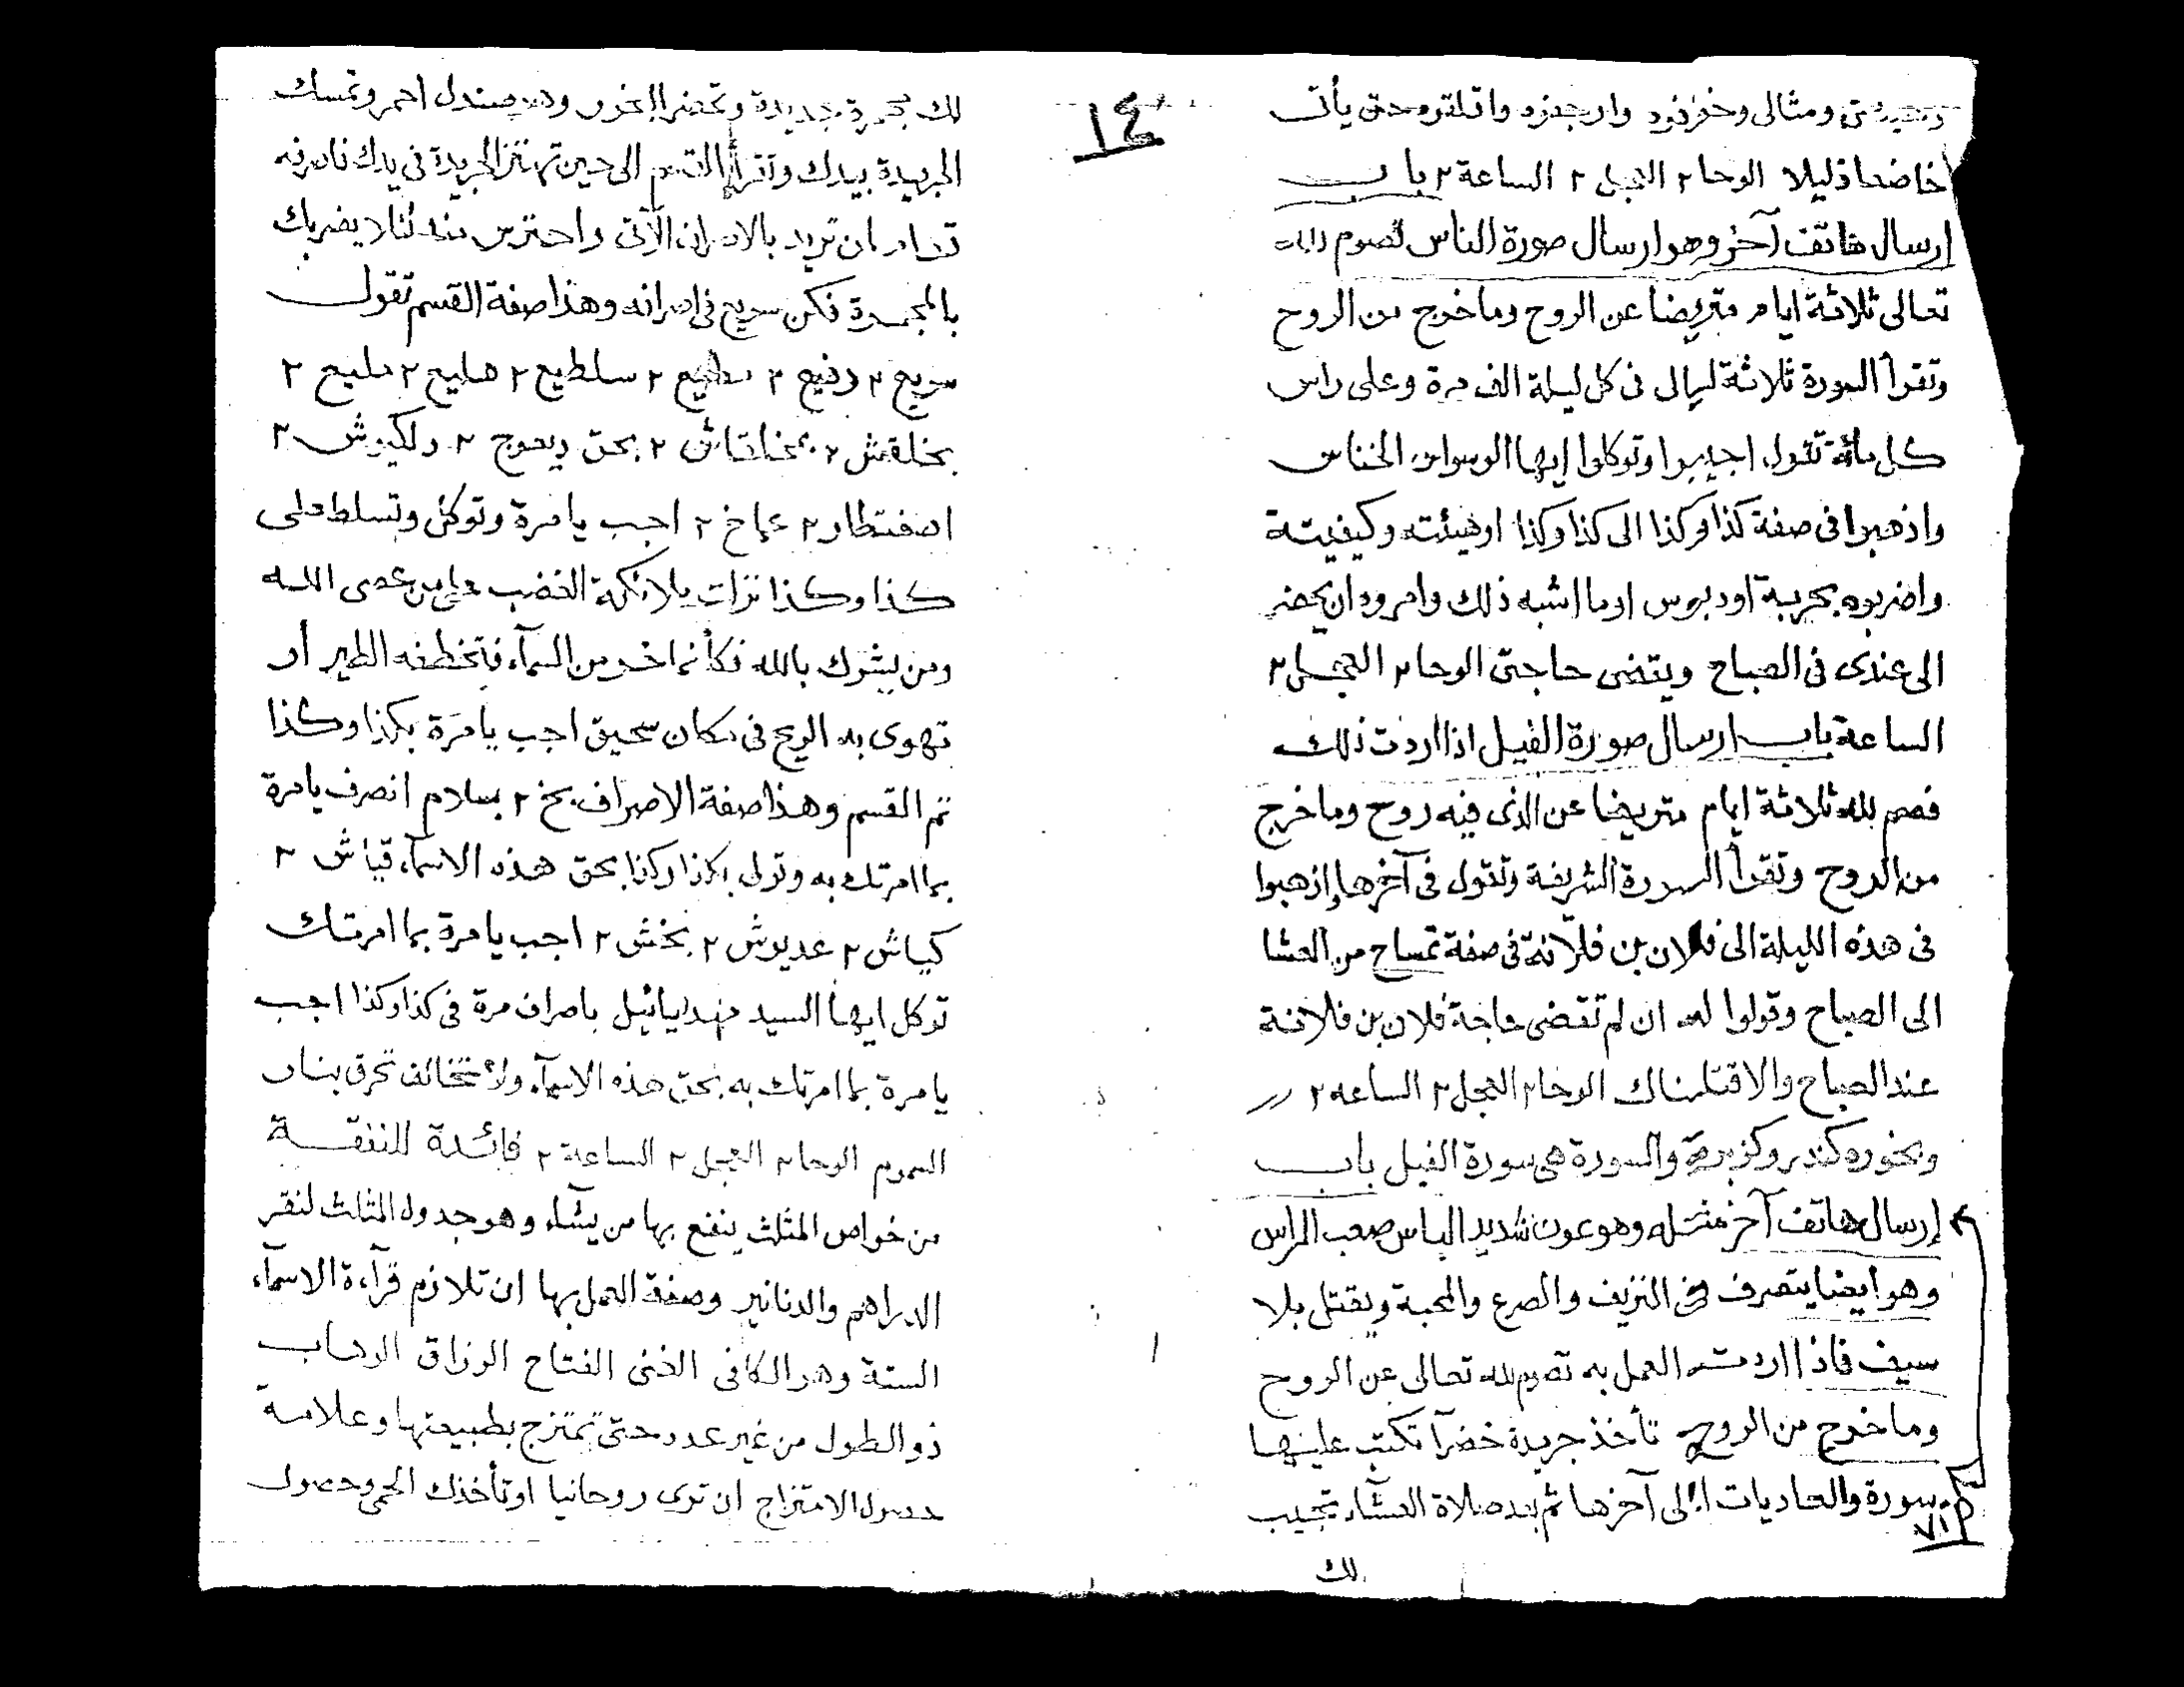 ومثالى وخوفوه وارجفوه واقلقوه حتى يأتى
خاضعا ذليلا الوحا ٢ العجل ٢ الساعة ٢ باب
إرسال هاتف آخر وهو ارسال صورة الناس تصوم لله
تعالى ثلاثة ايام متريضا عن الروح وما خرج من الروح
وتقرأ السورة ثلاثة ليالى فى كل ليلة الف مرة وعلى راس
كل مائة تقول اجيبوا وتوكلوا ايها الوسواس الخناس
واذهبوا فى صفة كذا وكذا الى كذا وكذا اوهيئته وكيفيته
واضربوه بحربة اودبوس اوما اشبه ذلك وامروه ان يحضر
الى عندى فى الصباح ويقضى حاجتى الوحا ٢ العجل ٢
الساعة باب ارسال صورة الفيل اذا اردت ذلك
فصم لله ثلاثة ايام متريضا عن الذى فيه روح وما خرج
من الروح وتقرأ السورة الشريفة وتقول فى آخرها إذهبوا
فى هذه الليلة الى فلان بن فلانة فى صفة تمساح من العشا
الى الصباح وقولوا له ان لم تقضى حاجة فلان بن فلانة
عند الصباح والا قتلناك الوحا ٢ العجل ٢ الساعه ٢
وبخوره كندر وكزبرة والسورة هى سورة الفيل باب
إرسال هاتف آخر مثله وهو عون شديد الباس صعب المراس
وهو ايضا يتصرف فى النزيف والصرع والمحبة ويقتل بلا
سيف فاذا اردت العمل به تصوم لله تعالى عن الروح
وما خرج من الروح تأخذ جريدة خضرآ تكتب عليها
سورة والعاديات الى آخرها ثم بعد صلاة العشآء تجيب
لك
١٤
لك بجمرة جديدة وتحضر البخور وهو صندل احمر وتمسك
الجريدة بيدك وتقرأ القسم الى حين تهتز الجريدة فى يدك فاصرفه
ان تريد بالاصراف الآتى واحترس منه لئلا يضربك
بالمجمرة فكن سريع فى اصرافه وهذا صفة القسم تقول
سريع ٢ رفيع ٢ ٢ سلطيع ٢ هليع ٢ مليع ٢
بخلقش ٢ ٢ بحق ديعوج ٢ دلكيوش ٢
٢ عماخ ٢ اجب يا مرة وتوكل وتسلط على
كذا وكذا نزلت ملائكة الغضب على من عصى الله
ومن يشرك بالله فكأنما خر من السمآء فتخطفه الطير أو
تهوى به الريح فى مكان سحيق اجب يا مرة بكذا وكذا
تم القسم وهذا صفة الاصراف بخ ٢ بسلام انصرف يا مرة
بما امرتك به وتولى بكذا وكذا بحق هذه الاسمآء قياش ٢
كياش ٢ عديوش ٢ بخش ٢ اجب يا مرة بما امرتك
توكل ايها السيد باصراف مرة فى كذا وكذا اجب
يا مرة بما امرتك به بحق هذه الاسمآء ولا تتخالف تحرق بنار
السموم الوحا ٢ العجل ٢ الساعة ٢ فائدة للنفقة
من خواص المثلث ينفع بها من يشآء وهو جدول المثلث لنقر
الدراهم والدنانير وصفة العمل بها ان تلازم قرآءة الاسمآء
الستة وهو الكافى الغنى الفتاح الرزاق الوهاب
ذو الطول من غير عدد حتى تمتزج بطبيعتها وعلامة
حصول الامتزاج ان ترى روحانيا او تأخذك الحمى وحصول